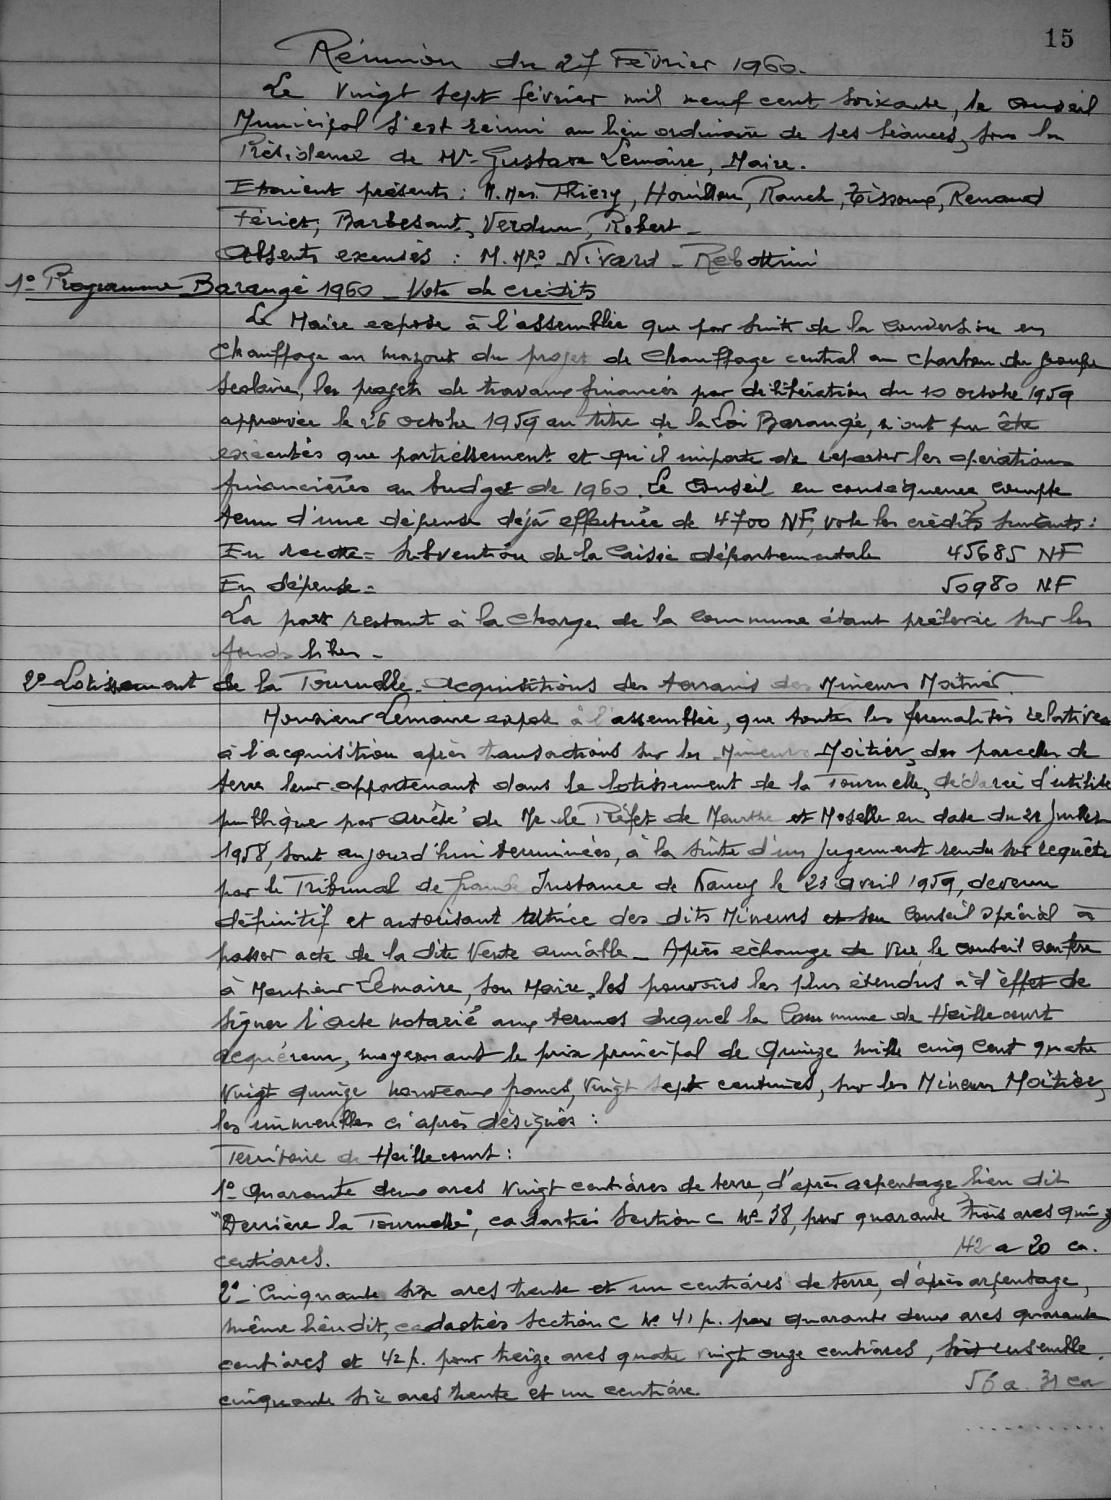 15
Réunion du 27 Février 1960.
Le Vingt Sept février mil neuf cent soixante, le Conseil
Municipal s'est réuni au lieu ordinaire de ses séances, sous la
Présidence de Mr Gustave Lemaire, Maire.
Etaient présents : M.Mrs. Thiery, Houillon, Rauch, Renaud
Fériet, Barbesant, Verdun, Robert -
Absents excusés : M.Mrs Nivard - Rebottini
1º Programme Barangé 1960 - Vote de crédits
Le Maire expose à l'assemblée que par suite de la conversion en
Chauffage au mazout du projet de chauffage central au charbon du groupe
Scolaire, les projets de travaux financés par délibération du 10 octobre 1959
approuvée le 26 octobre 1959 au titre de la Loi Barangé, n'ont pu être
exécutés que partiellement et qu'il importe de reporter les opérations
financières au budget de 1960. Le Conseil en conséquence, compte
tenu d'une dépense déjà effectuée de 4700 NF, vote les crédits suivants :
En recette = Subvention de la Caisse départementale 45685 NF
En dépense = 50980 NF
La part restant à la charge de la commune étant prélevée sur les
fonds libres -
2º Lotissement de la Tournelle. Acquisitions des terrains des Mineurs Moitrier.
Monsieur Lemaire expose à l'assemblée, que toutes les formalités relatives
à l'acquisition après transactions sur les Mineurs Moitier, des parcelles de
terre leur appartenant dans le lotissement de la Tournelle, déclaré d'utilité
publique par arrêté de Mr le Préfet de Meurthe et Moselle en date du 21 Juillet
1958, sont aujourd'hui terminées, à la suite d'un jugement rendu sur requête
par le Tribunal de Grande Instance de Nancy le 23 avril 1959, devenu
définitif et autorisant tutrice des dits Mineurs et son Conseil spécial à
passer acte de la dite Vente amiable - Après échange de vue, le conseil confère
à Monsieur Lemaire, son Maire, les pouvoirs les plus étendus à d'effet de
signer l'acte notarié aux termes duquel la Commune de Heillecourt
acquéreur, moyennant le prix principal de Quinze mille cinq cent quatre
Vingt quinze nouveaux francs, Vingt sept centimes, sur les Mineurs Moitier,
les immeubles ci après désignés :
Territoire de Heillecourt :
1º Quarante deux ares Vingt centiares de terre, d'après arpentage lieu dit
"Derrière la Tournelle", cadastré Section C Nº 38, pour quarante trois ares quinze
centiares. 42 a 20 ca.
2º - Cinquante six ares trente et un centiares de terre, d'après arpentage,
même lieu dit, cadastrés Section C Nº 41 p. pour quarante deux ares quarante
centiares et 42 p. pour treize ares quatre vingt onze centiares, soit ensemble
cinquante six ares trente et un centiare 56 a. 31 ca
..........